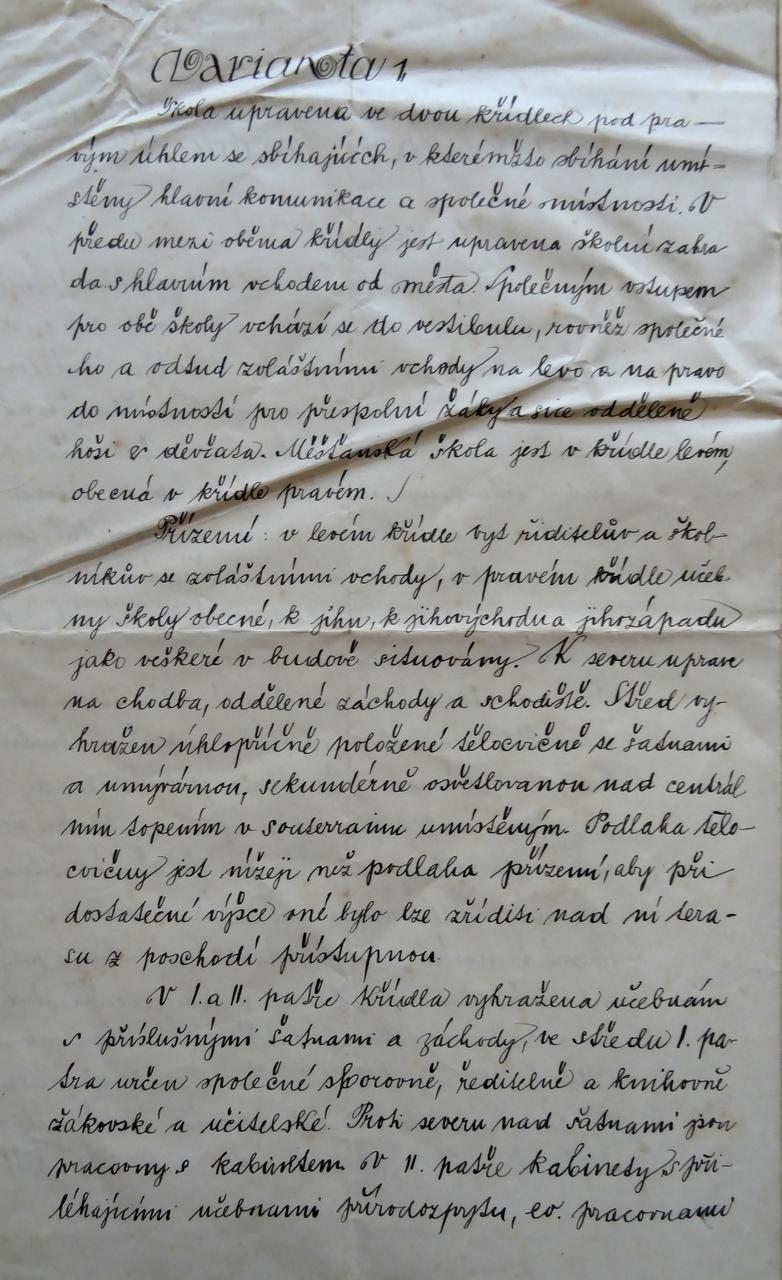 Varianta 1,
Škola upravena ve dvou křídlech pod pra-
vým úhlem se sbíhajících, v kterémžto sbíhání umí-
stěny hlavní komunikace a společné místnosti. V
předu mezi oběma křídly jest upravena školní zahra
da s hlavním vchodem od města. Společným vstupem
pro obě školy vchází se do vestibulu, rovněž společné
ho a odtud zvláštními vchody na levo a na pravo
do místností pro přespolní žáky a sice odděleně
hoši a děvčata. Měšťanská škola jest v křídle levém,
obecná v křídle pravém.
Přízemí: v levém křídle byt řiditelův a škol-
níkův se zvláštními vchody, v pravém křídle učeb
ny školy obecné, k jihu, k jihovýchodu a jihozápadu
jako veškeré v budově situovány. K severu uprave
na chodba, oddělené záchody a schodiště. Střed vy-
hražen úhlopříčně položené tělocvičně se šatnami
a umývárnou, sekundérně osvětlovanou nad centrál
ním topením v souterrainu umístěným. Podlaha tělo-
cvičny jest nížeji než podlaha přízemí, aby při
dostatečné výšce oné bylo lze zříditi nad ní tera-
su z poschodí přístupnou.
V I. a II. patře křídla vyhražena učebnám
s příslušnými šatnami a záchody, ve středu I. pa-
tra určen společné sborovně, ředitelně a knihovně
žákovské a učitelské. Proti severu nad šatnami jsou
pracovny s kabinetem. V II. patře kabinety s při-
léhajícími učebnami přírodozpytu, ev. pracovnami